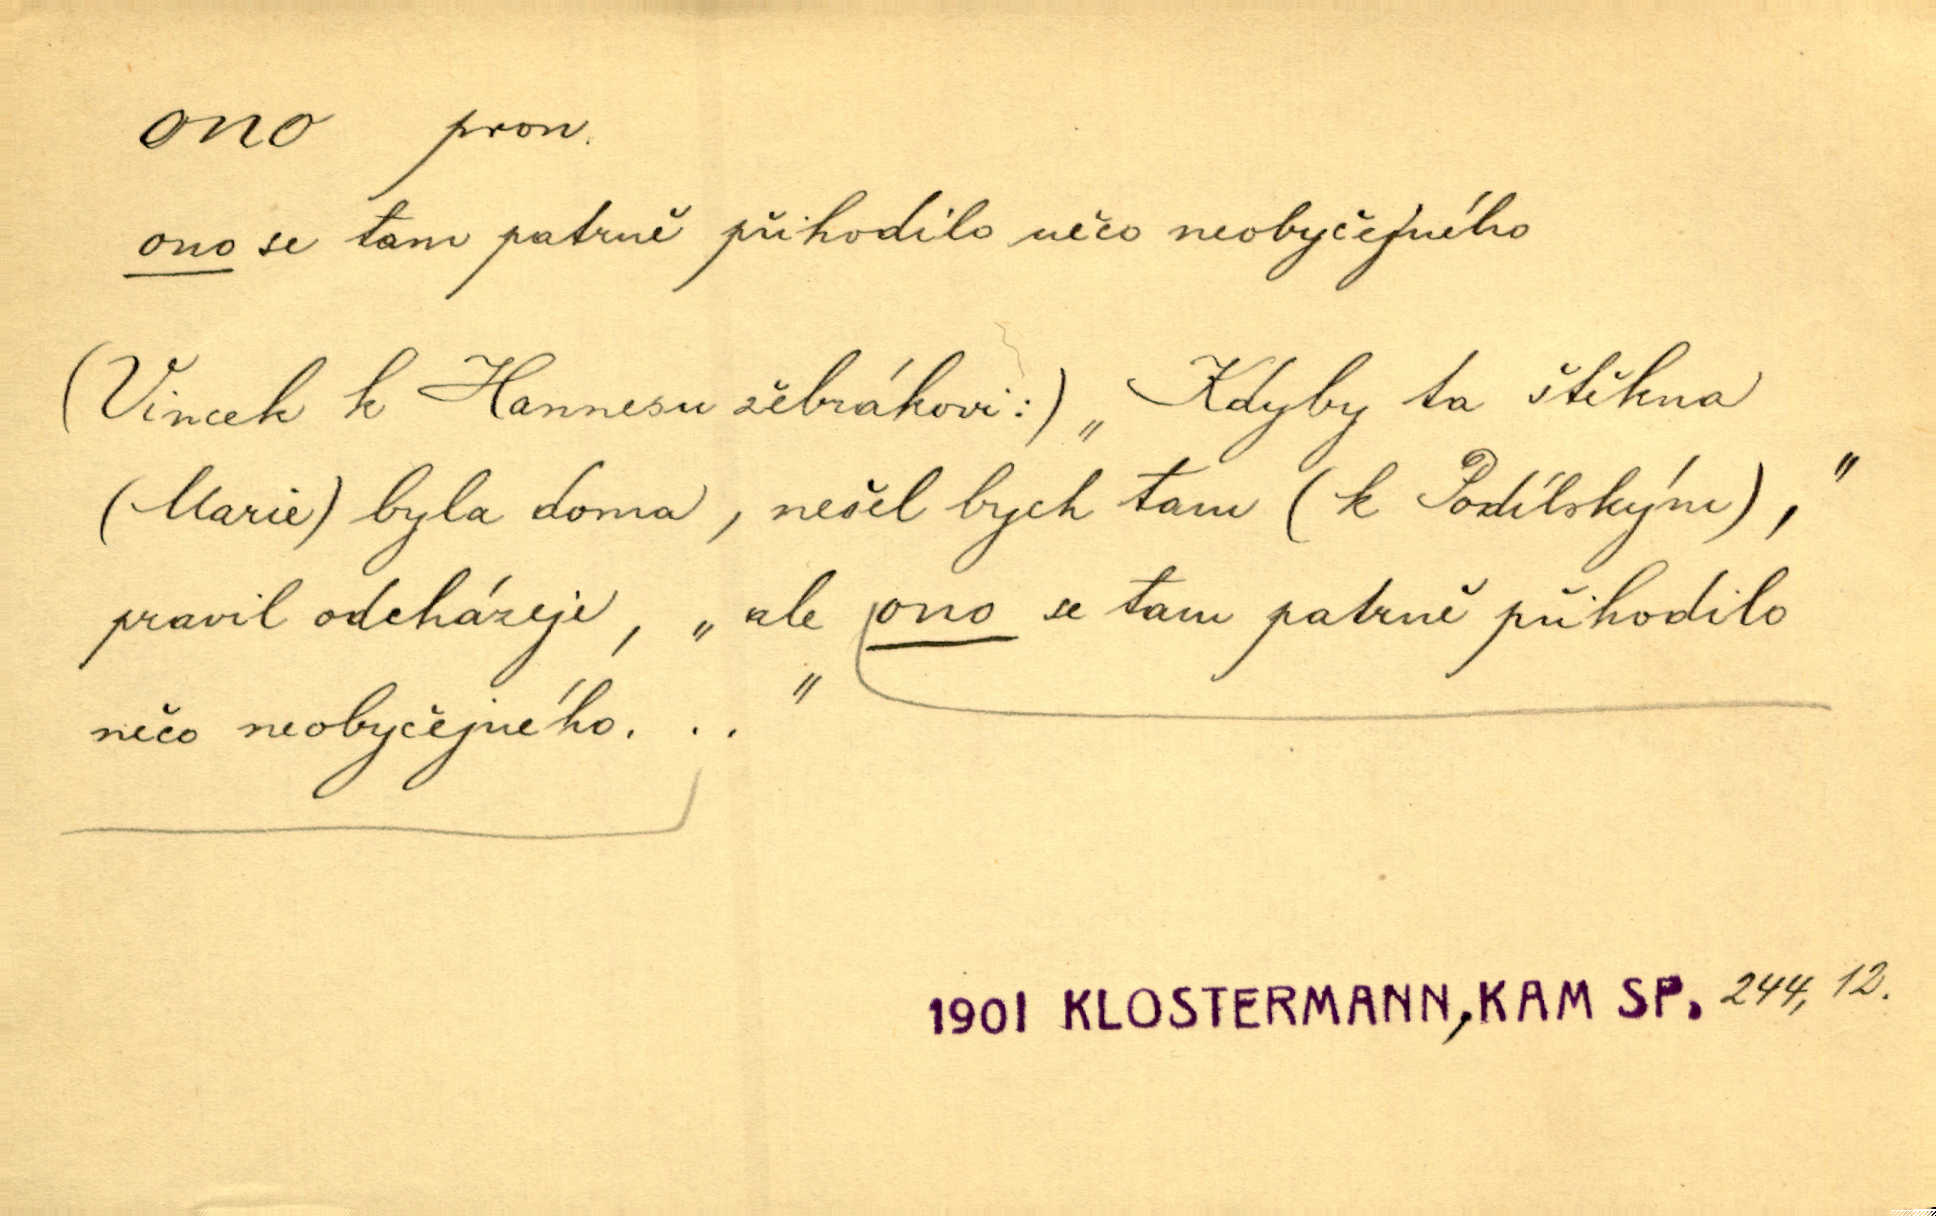 ono pron.
ono se tam patrně přihodilo něco neobyčejného
(Vincek k Hannesu žebrákovi:) „Kdyby ta štěkna
(Marie) byla doma, nešel bych tam (k Podílským),"
pravil odcházeje, „ale ono se tam patrně přihodilo
něco neobyčejného. . ."
1901 KLOSTERMANN, KAM SP. 244, 12.